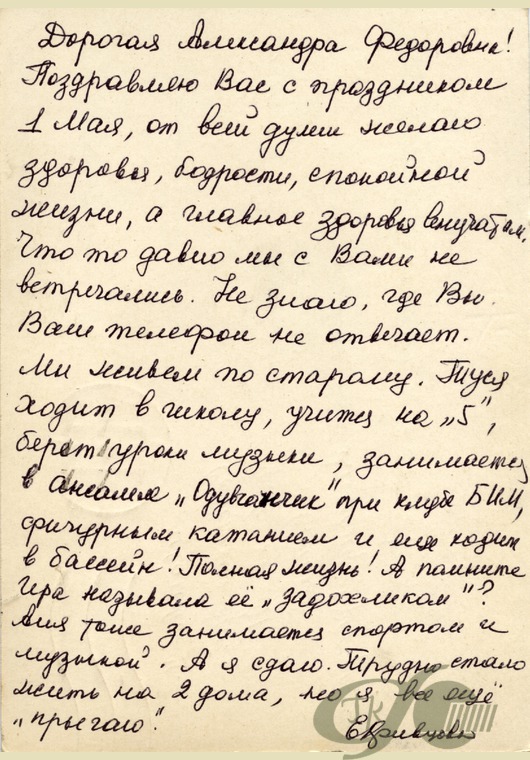 Дорогая Александра Федоровна!
Поздравляю Вас с праздником
1 Мая, от всей души желаю
здоровья, бодрости, спокойной
жизни, а главное здоровья внучатам.
Что то давно мы с Вами не
встречались. Не знаю, где Вы.
Ваш телефон не отвечает.
Мы живем по старому. Туся
ходит в школу, учится на „5",
берет уроки музыки, занимается
в ансамле „Одуванчик" при клубе БИМ,
фигурным катанием и еще ходит
в бассейн! Полная жизнь! А помните
Ира называла её „задохликом"?
Аня тоже занимается спортом и
музыкой. А я сдаю. Трудно стало
жить на 2 дома, но я все ещё
„прыгаю".